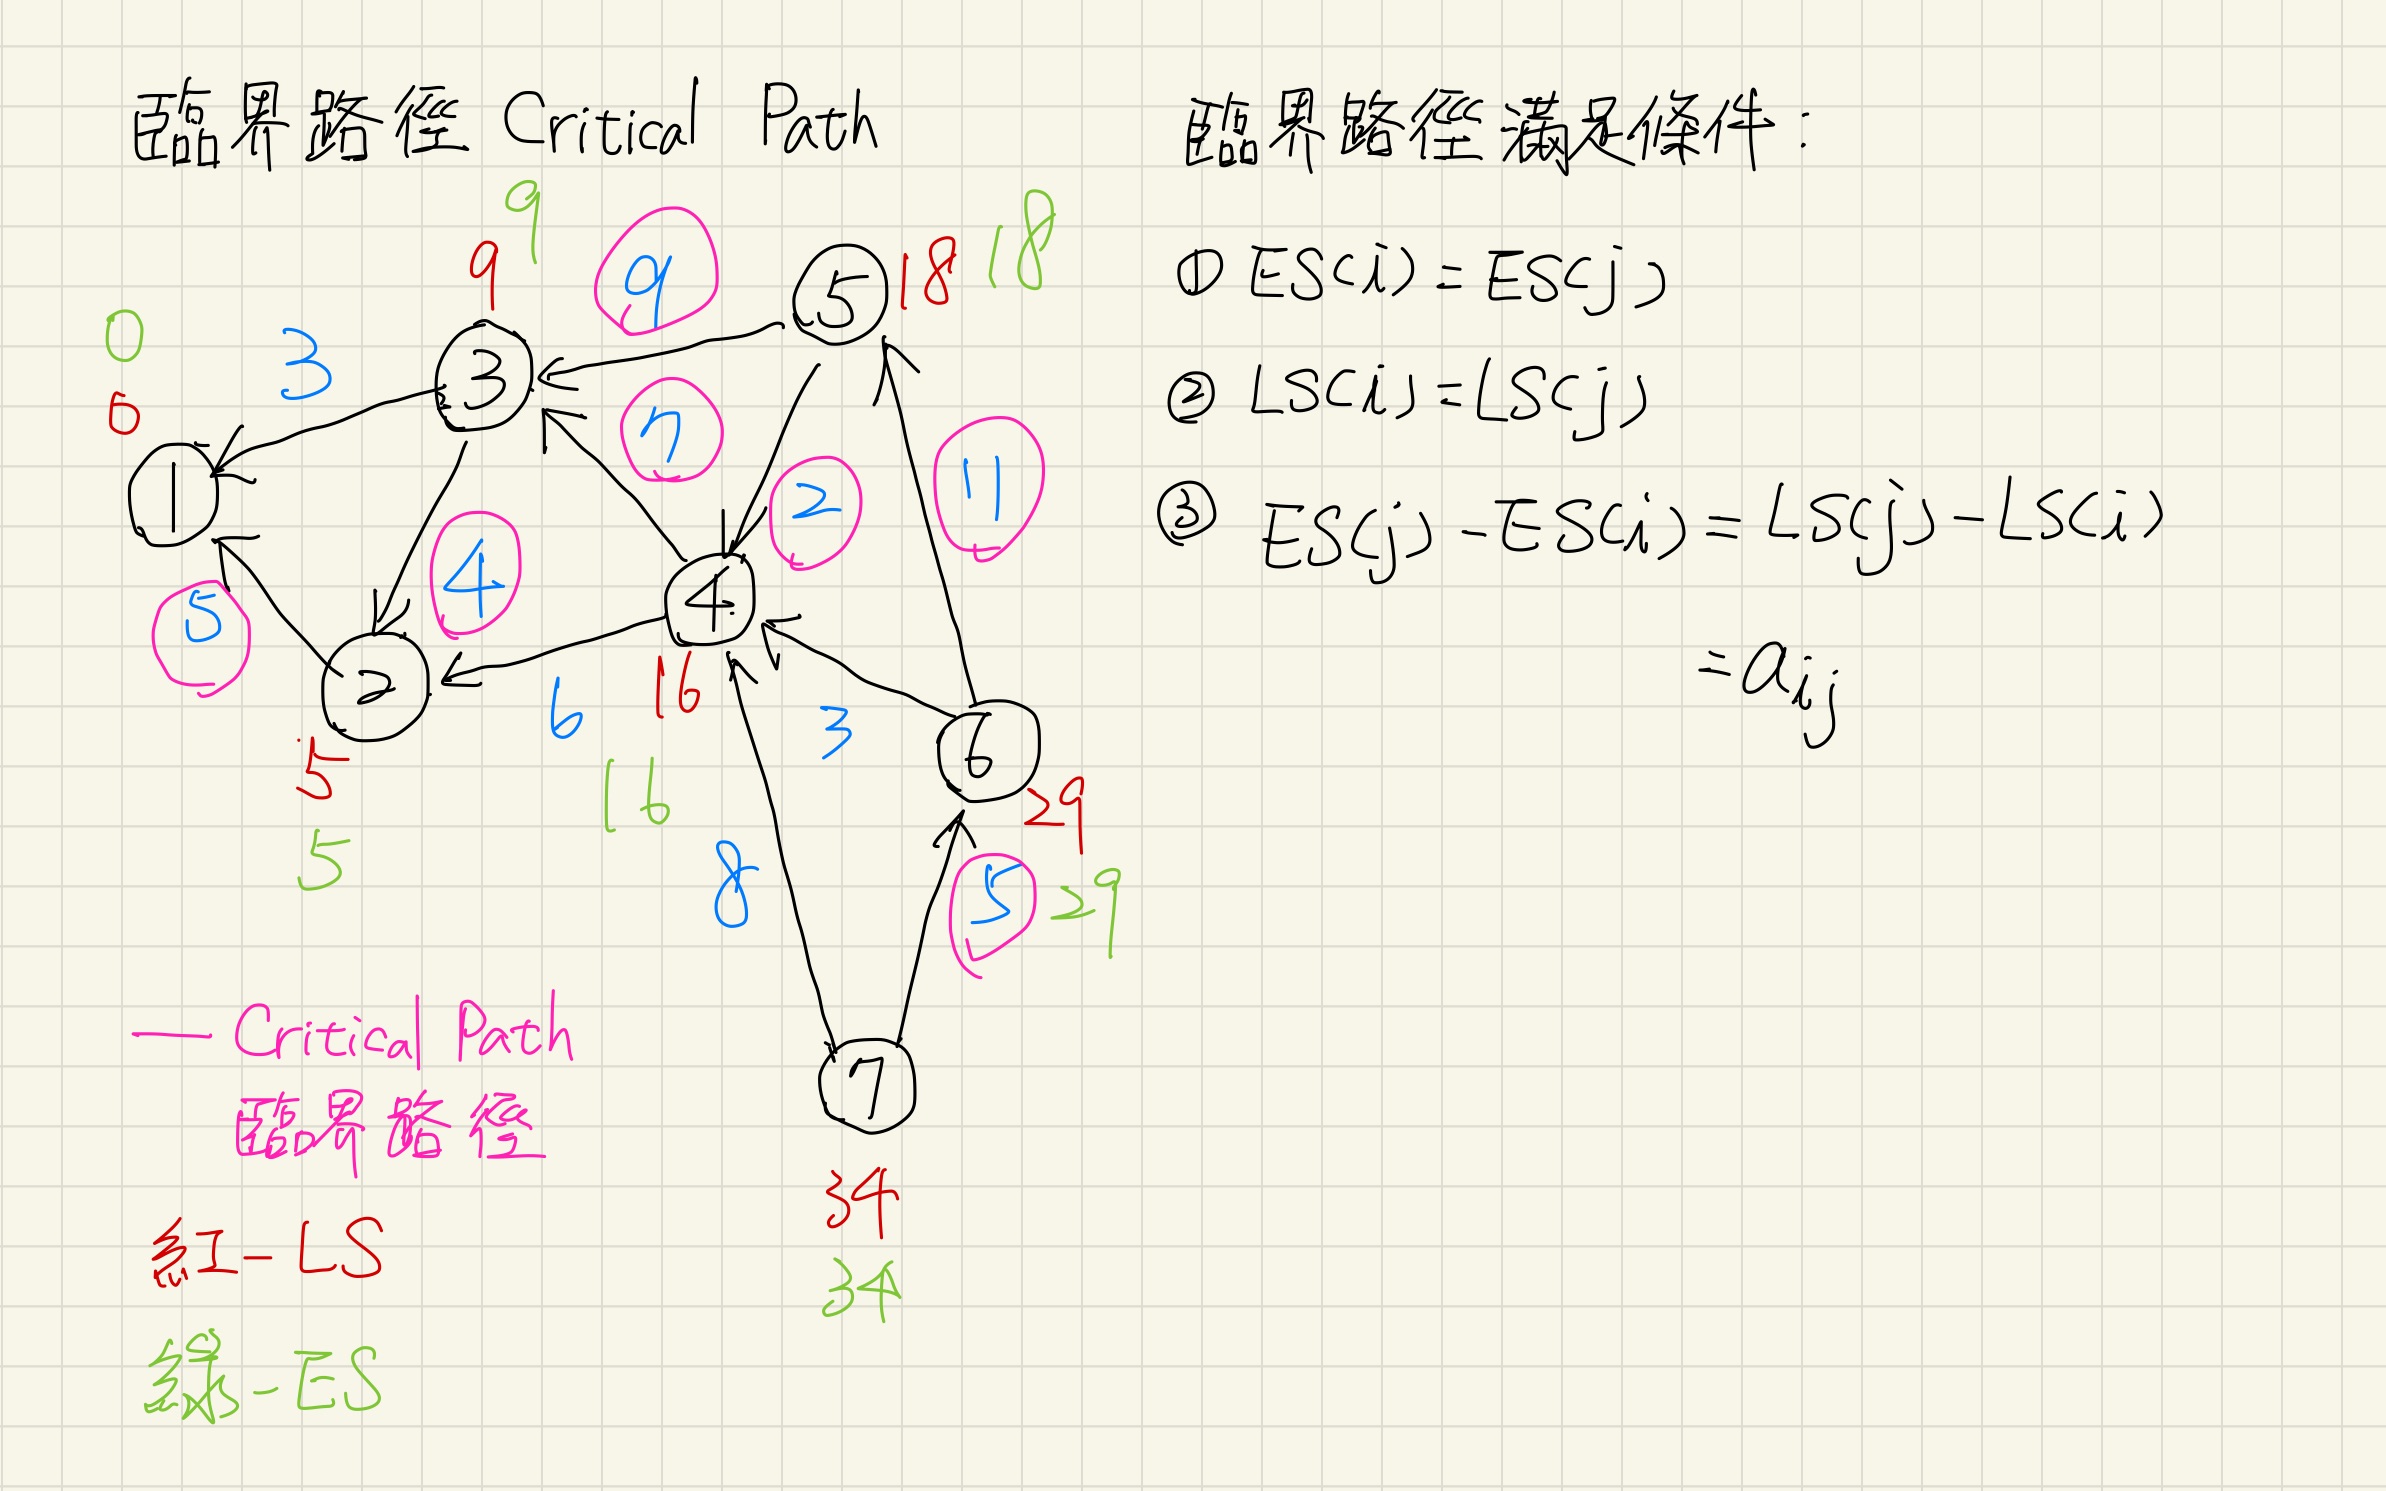 臨界路徑 Critical Path
9
9
9
5
18
18
0
0
3
3
7
2
11
1
4
4
5
2
6
16
16
3
6
29
29
5
5
8
5
7
34
34
— Critical Path
臨界路徑
紅-LS
綠-ES
臨界路徑滿足條件:
① ES(i)=ES(j)
② LS(i)=LS(j)
③ ES(j)-ES(i)=LS(j)-LS(i)
=aij